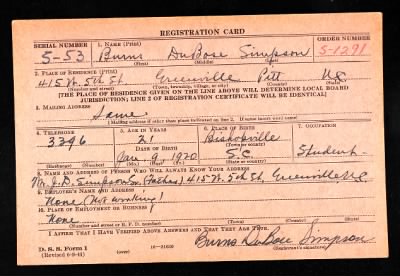 REGISTRATION CARD
SERIAL NUMBER 1. NAME (Print) ORDER NUMBER
S-53 Burns DuBose Simpson S-1291
(First) (Middle) (Last)
2. PLACE OF RESIDENCE (Print)
415 W. 5th St. Greenville Pitt N.C.
(Number and street) (Town, township, village, or city) (County) (State)
[THE PLACE OF RESIDENCE GIVEN ON THE LINE ABOVE WILL DETERMINE LOCAL BOARD
JURISDICTION; LINE 2 OF REGISTRATION CERTIFICATE WILL BE IDENTICAL]
3. MAILING ADDRESS
Same
[Mailing address if other than place indicated on line 2. If same insert word same]
4. TELEPHONE 5. AGE IN YEARS 6. PLACE OF BIRTH 7. OCCUPATION
3296 21 Bishopville
DATE OF BIRTH (Town or county)
Jan. 9 1920 S.C. Student
(Exchange) (Number) (Mo.) (Day) (Yr.) (State or country)
8. NAME AND ADDRESS OF PERSON WHO WILL ALWAYS KNOW YOUR ADDRESS
Mr. J.D. Simpson (Father) 415 W. 5th St. Greenville N.C.
9. EMPLOYER'S NAME AND ADDRESS
None (Not working)
10. PLACE OF EMPLOYMENT OR BUSINESS
None
(Number and street or R. F. D. number) (Town) (County) (State)
I AFFIRM THAT I HAVE VERIFIED ABOVE ANSWERS AND THAT THEY ARE TRUE.
D. S. S. Form 1 Burns DuBose Simpson
(Revised 6-9-41) (over) 16-21630 (Registrant's signature)